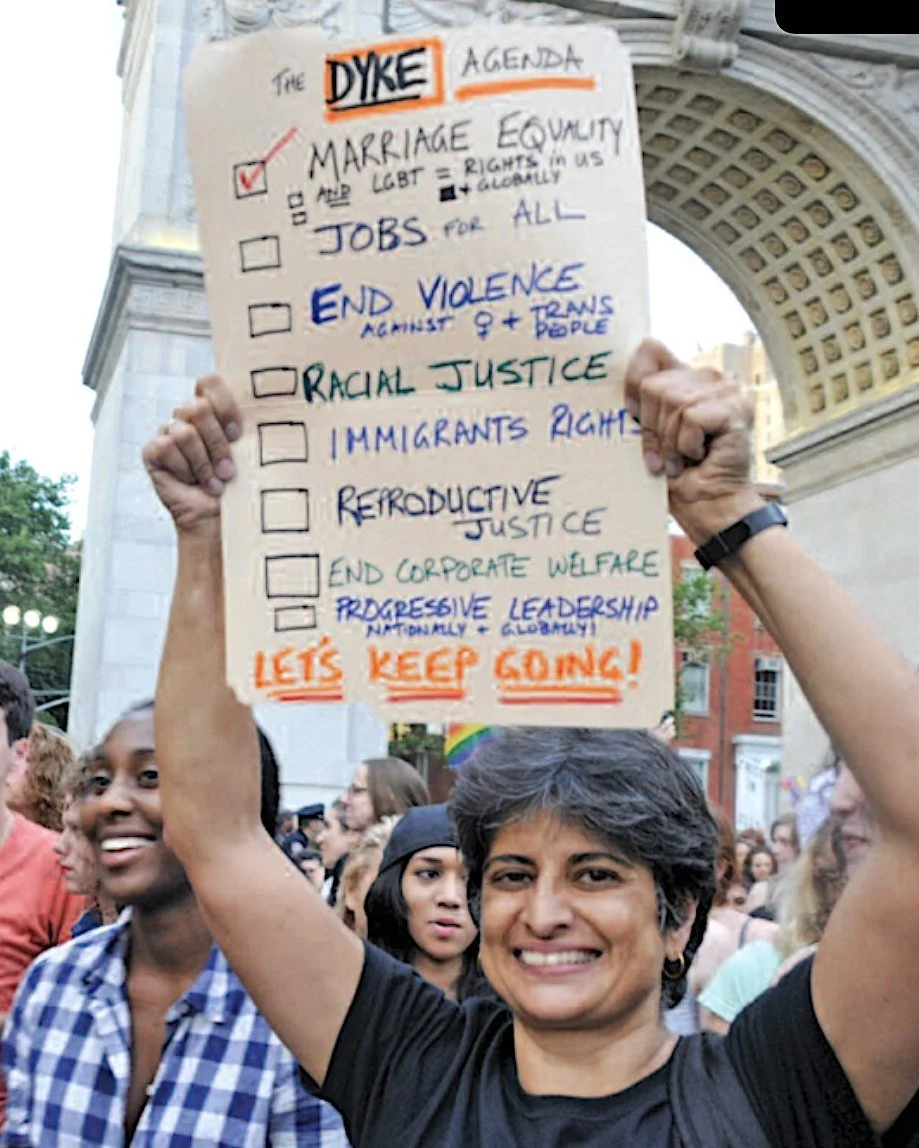 THE DYKE AGENDA
MARRIAGE EQUALITY
AND LGBT = RIGHTS in US
+ GLOBALLY
JOBS FOR ALL
END VIOLENCE
AGAINST ♀ + TRANS
PEOPLE
RACIAL JUSTICE
IMMIGRANTS RIGHTS
REPRODUCTIVE
JUSTICE
END CORPORATE WELFARE
PROGRESSIVE LEADERSHIP
NATIONALLY + GLOBALLY!
LET'S KEEP GOING!